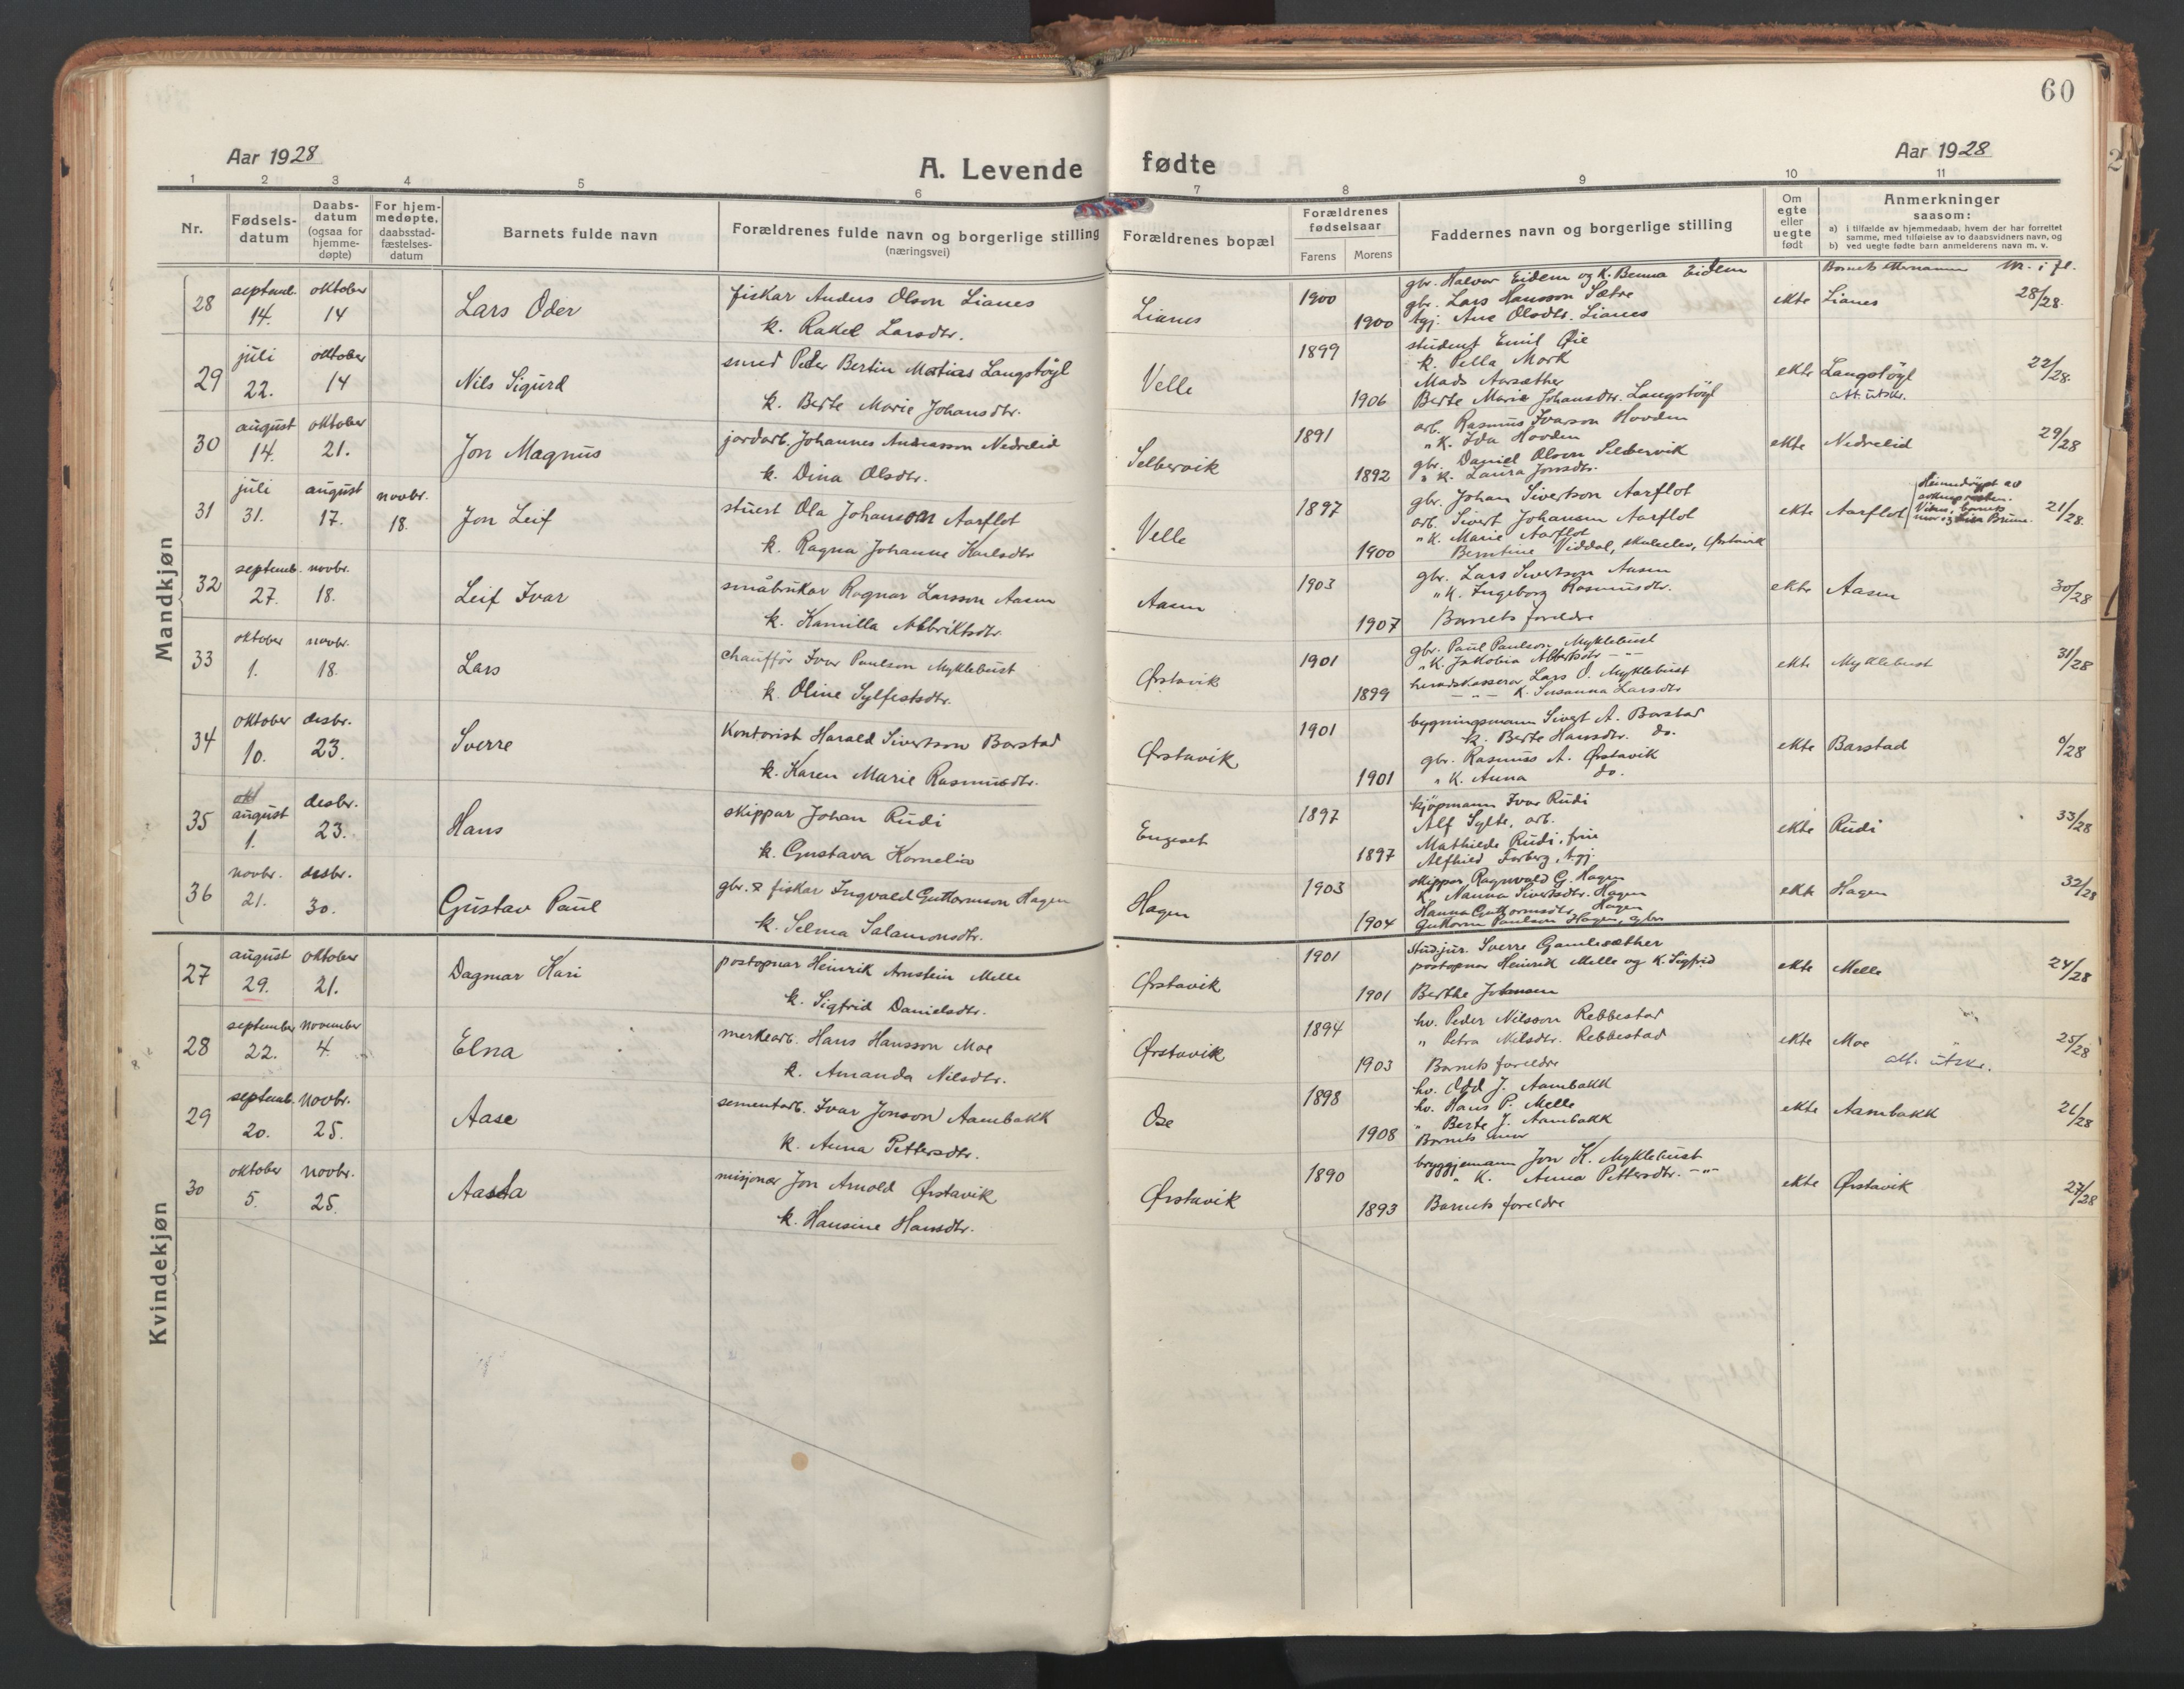 60
Aar 1928
A. Levende fødte
Aar 1928
1 2 3 4 5 6 7 8 9 10 11
Nr.
Fødsels-datum
Daabs-datum (ogsaa for hjemme-døpte)
For hjem-medøpte, daabsstad-fæstelses-datum
Barnets fulde navn
Forældrenes fulde navn og borgerlige stilling (næringsvei)
Forældrenes bopæl
Forældrenes fødselsaar
Farens Morens
Faddernes navn og borgerlige stilling
Om egte eller uegte født
Anmerkninger saasom:
a) i tilfælde av hjemmedaab, hvem der har forrettet samme, med tilføielse av to daabsvidners navn, og
b) ved uegte fødte barn anmelderens navn m. v.
Mandkjøn
Barnets etternamn M. i fl.
28 septemb. 14. oktober 14 Lars Oder
fiskar Anders Olson Lianes
k. Rakel Larsdtr.
Lianes 1900 1900
gbr. Halvar Eidem og K. Benna Eidem
gbr. Lars Hansson Sætre
tgj. Ane Olsdtr. Lianes
ekte Lianes 28/28.
29 juli 22. oktober 14 Nils Sigurd
smed Peder Bertin Matias Langstöyl
k. Berte Marie Johansdtr.
Velle 1899 1906
student Emil Øie
k. Pella Mork
Mads Aarsæther
Berte Marie Johansdtr. Langstöyl
ekte Langstöyl 22/28.
att. utskr.
30 august 14. oktober 21. Jon Magnus
jordarb. Johannes Andreasson Nedrelid
k. Dina Olsdtr.
Selbervik 1891 1892
arb. Rasmus Ivarson Hovden
" K. Ida Hovden
gbr. Daniel Olson Selbervik
" K. Laura Jonsdtr.
ekte Nedrelid 29/28
31 juli 31. august 17. novbr. 18. Jon Leif
stuert Ola Johanson Aarflot
k. Ragna Johanne Karlsdtr
Velle 1897 1900
gbr. Johan Sivertson Aarflot
arb. Sivert Johansen Aarflot
" K. Marie Aarflot
Berntine Viddal, skuleelev, Ørstavik
ekte Aarflot
Heimedöypt av
21/28.
32 septemb. 27. novbr. 18. Leif Ivar
småbrukar Ragnar Larsson Aasen
k. Kamilla Albriktsdtr.
Aasen 1903 1907
gbr. Lars Sivertson Aasen
" K. Ingeborg Rasmusdtr.
Barnets foreldre
ekte Aasen 30/28
33 oktober 1. novbr. 18. Lars
chaufför Ivar Paulson Myklebust
k. Oline Sylfestsdtr.
Ørstavik 1901 1899
gbr. Paul Paulson Myklebust
" K. Jakobia Albertsdtr – " –
heradskasserar Lars O. Myklebust
– " – K. Susanna Larsdtr
ekte Myklebust 31/28
34 oktober 10. desbr. 23. Sverre
Kontorist Harald Sivertson Barstad
k. Karen Marie Rasmusdtr.
Ørstavik 1901 1901
bygningsmann Sivert A. Barstad
k. Berte Hansdtr. do.
gbr. Rasmus A. Ørstavik
" K. Anna do.
ekte Barstad 9/28
35 okt august 1. desbr. 23. Hans
skippar Johan Rudi
k. Gustava Kornelia
Engeset 1897 1897
kjöpmann Ivar Rudi
Alf Sylte, arb.
Mathilde Rudi, frue
Alfhild Farberg, tgj.
ekte Rudi 33/28
36 novbr. 21. desbr. 30. Gustav Paul
gbr. & fiskar Ingvald Guttormson Hagen
k. Selma Salamonsdtr.
Hagen 1903 1904
skippar Ragnvald G. Hagen
K. Nanna Sivertsdtr. Hagen
Hanna Guttormsdtr. Hagen
Guttorm Paulson Hagen, gbr.
ekte Hagen 32/28
Kvindekjøn
27 august 29. oktober 21. Dagmar Kari
postopnar Heinrik Arnstein Melle
k. Sigfrid Danielsdtr.
Ørstavik 1901 1901
stud.jur. Sverre Gamlesæther
postopnar Heinrik Melle og K. Sigfrid
Berthe Johansen
ekte Melle 24/28
28 september 22. november 4. Elna
merkearb. Hans Hansson Moe
k. Amanda Nilsdtr.
Ørstavik 1894 1903
hv. Peder Nilsson Rebbestad
" Petra Nilsdtr. Rebbestad
Barnets foreldre
ekte Moe 25/28
att. utskr.
29 septemb. 20. novbr. 25. Aase
sementarb. Ivar Jonson Aambakk
k. Anna Pettersdtr.
Ose 1898 1908
hv. Odd J. Aambakk
hv. Hans P. Melle
" Berte J. Aambakk
Barnets mor
ekte Aambakk 26/28
30 oktober 5. novbr. 25. Aasta
misjonær Jon Arnold Ørstavik
k. Hansine Hansdtr.
Ørstavik 1890 1893
bryggjemann Jon K. Myklebust
" K. Anna Pettersdtr. – " –
Barnets foreldre
ekte Ørstavik 27/28